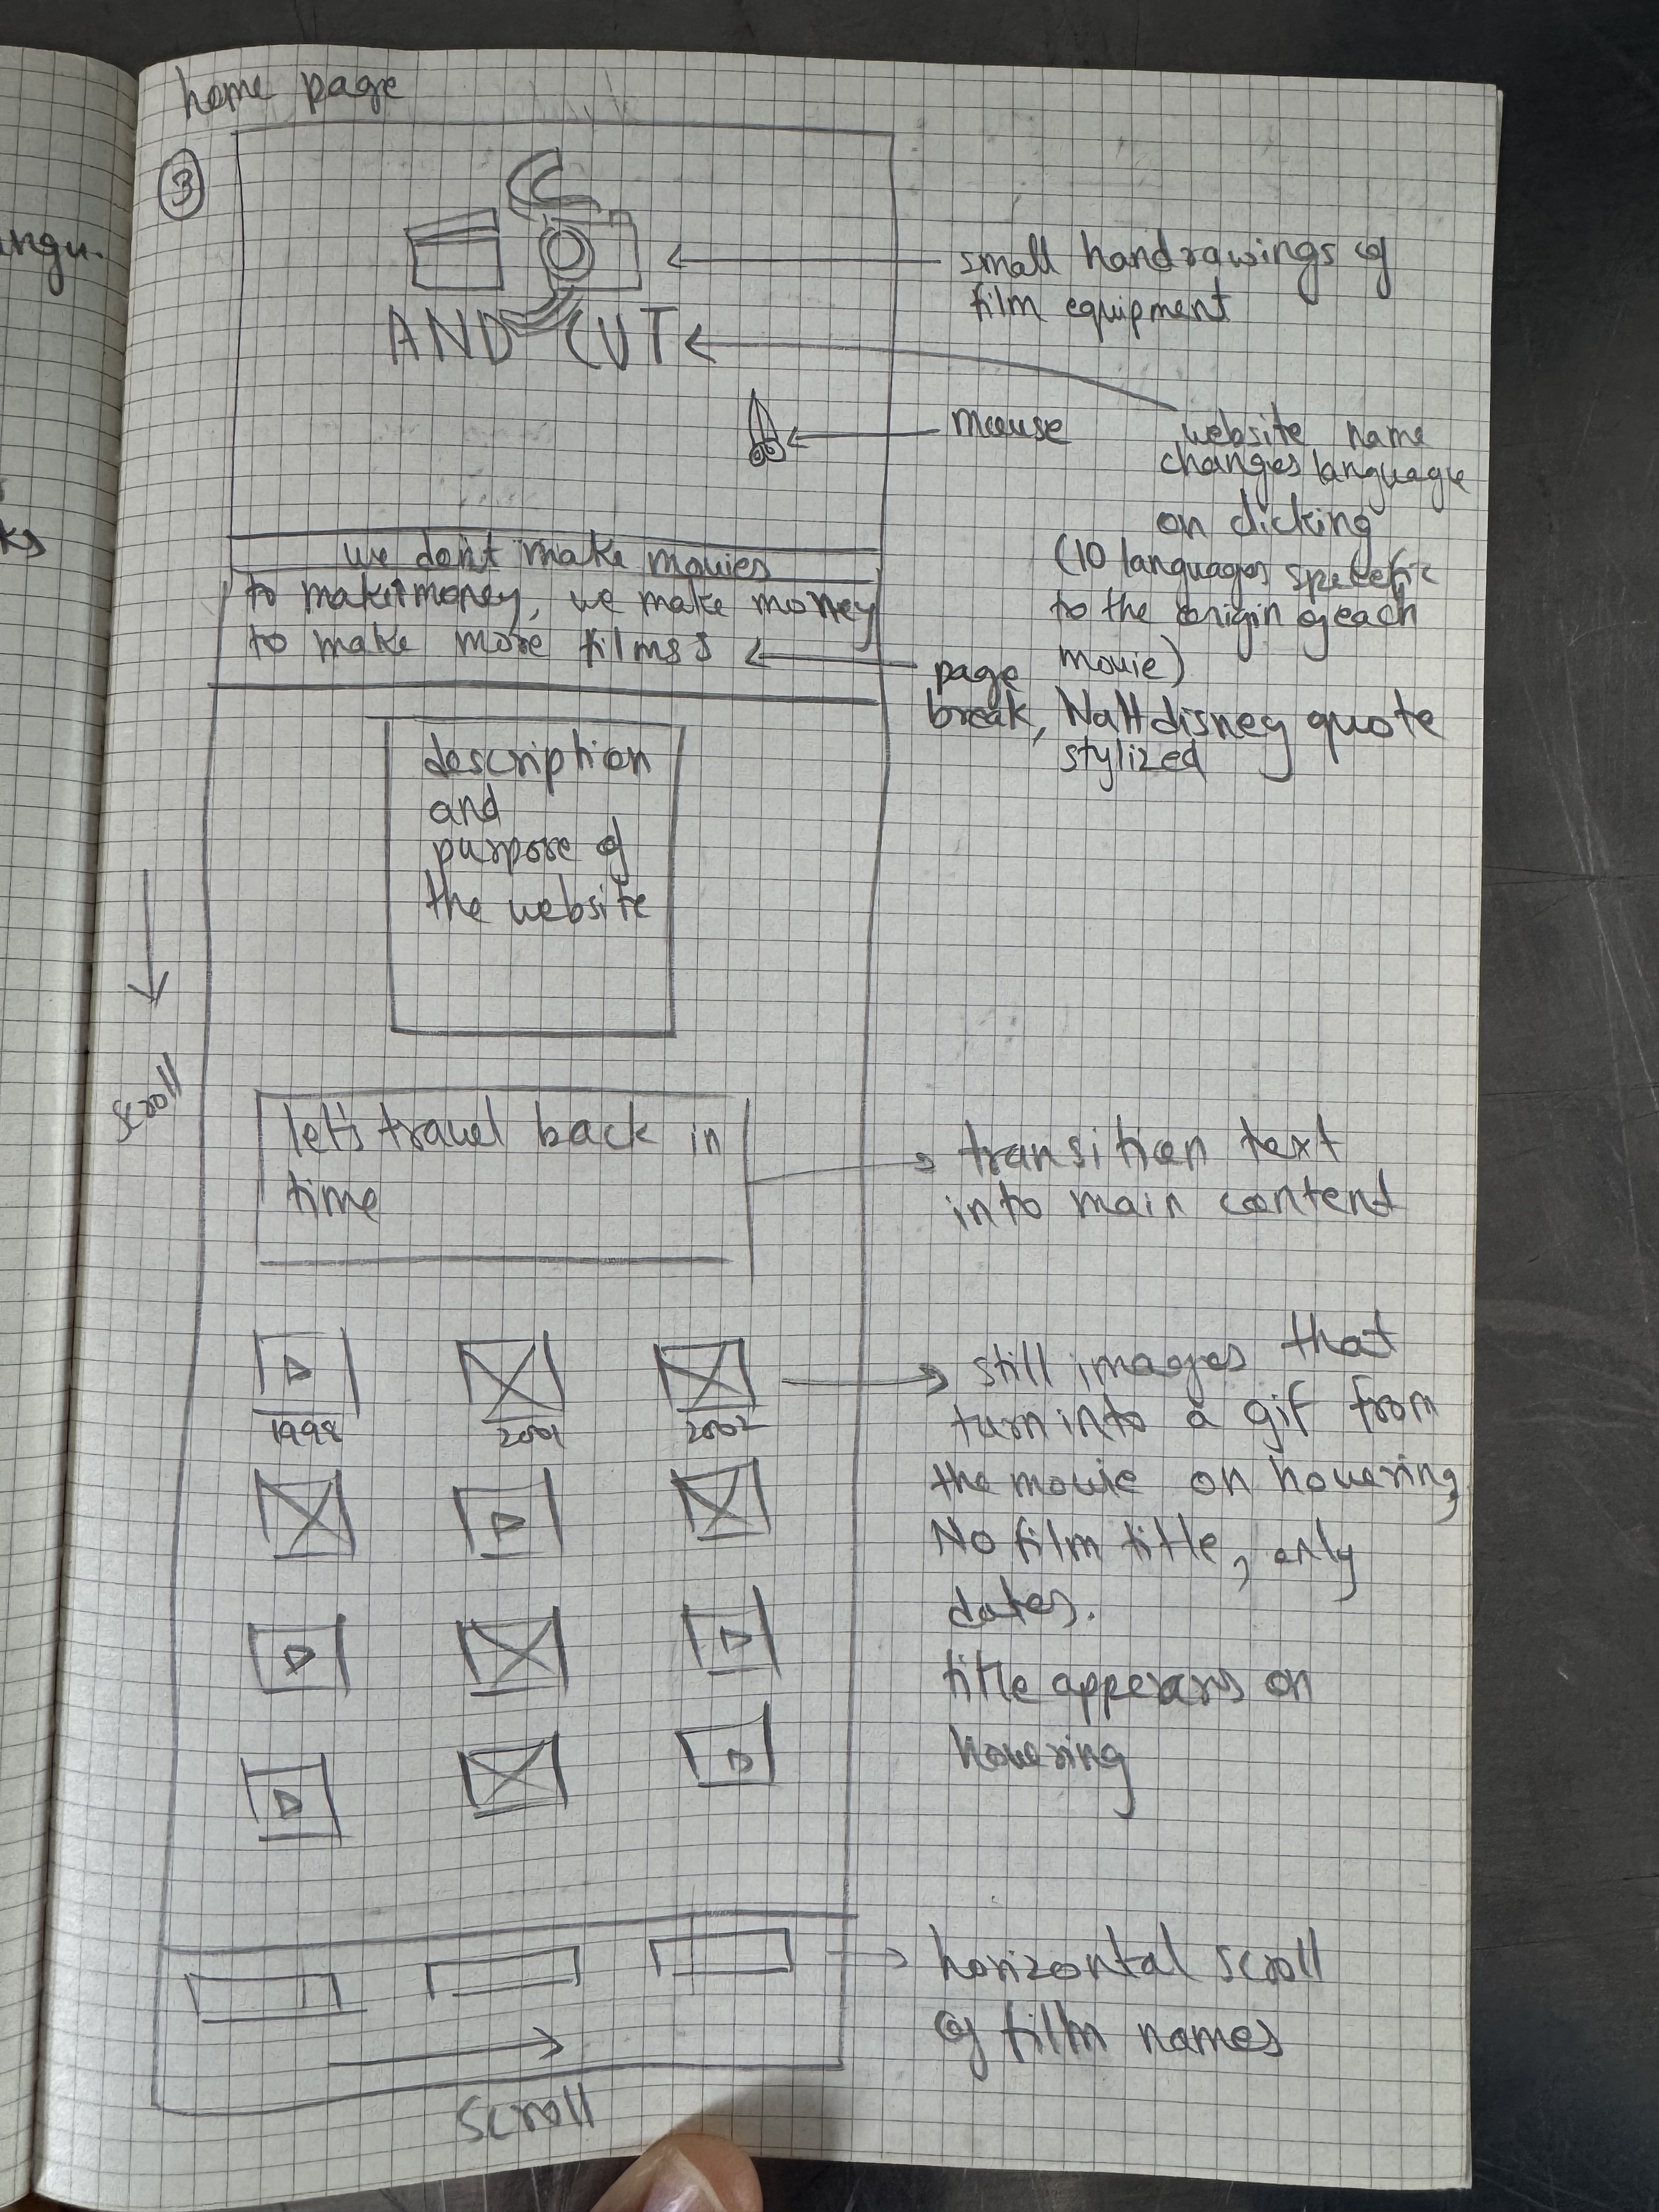 home page
3
small handrawings of
film equipment
AND CUT
mouse
website name
changes language
on clicking
(10 languages specefic
to the origin of each
movie)
we don't make movies
to make money, we make money
to make more films
page
break, Walt disney quote
stylized
description
and
purpose of
the website
scroll
let's travel back in
time
transition text
into main content
1998
2001
2002
still images that
turn into a gif from
the movie on hovering
No film title, only
dates.
title appears on
hovering
horizontal scroll
of film names
scroll